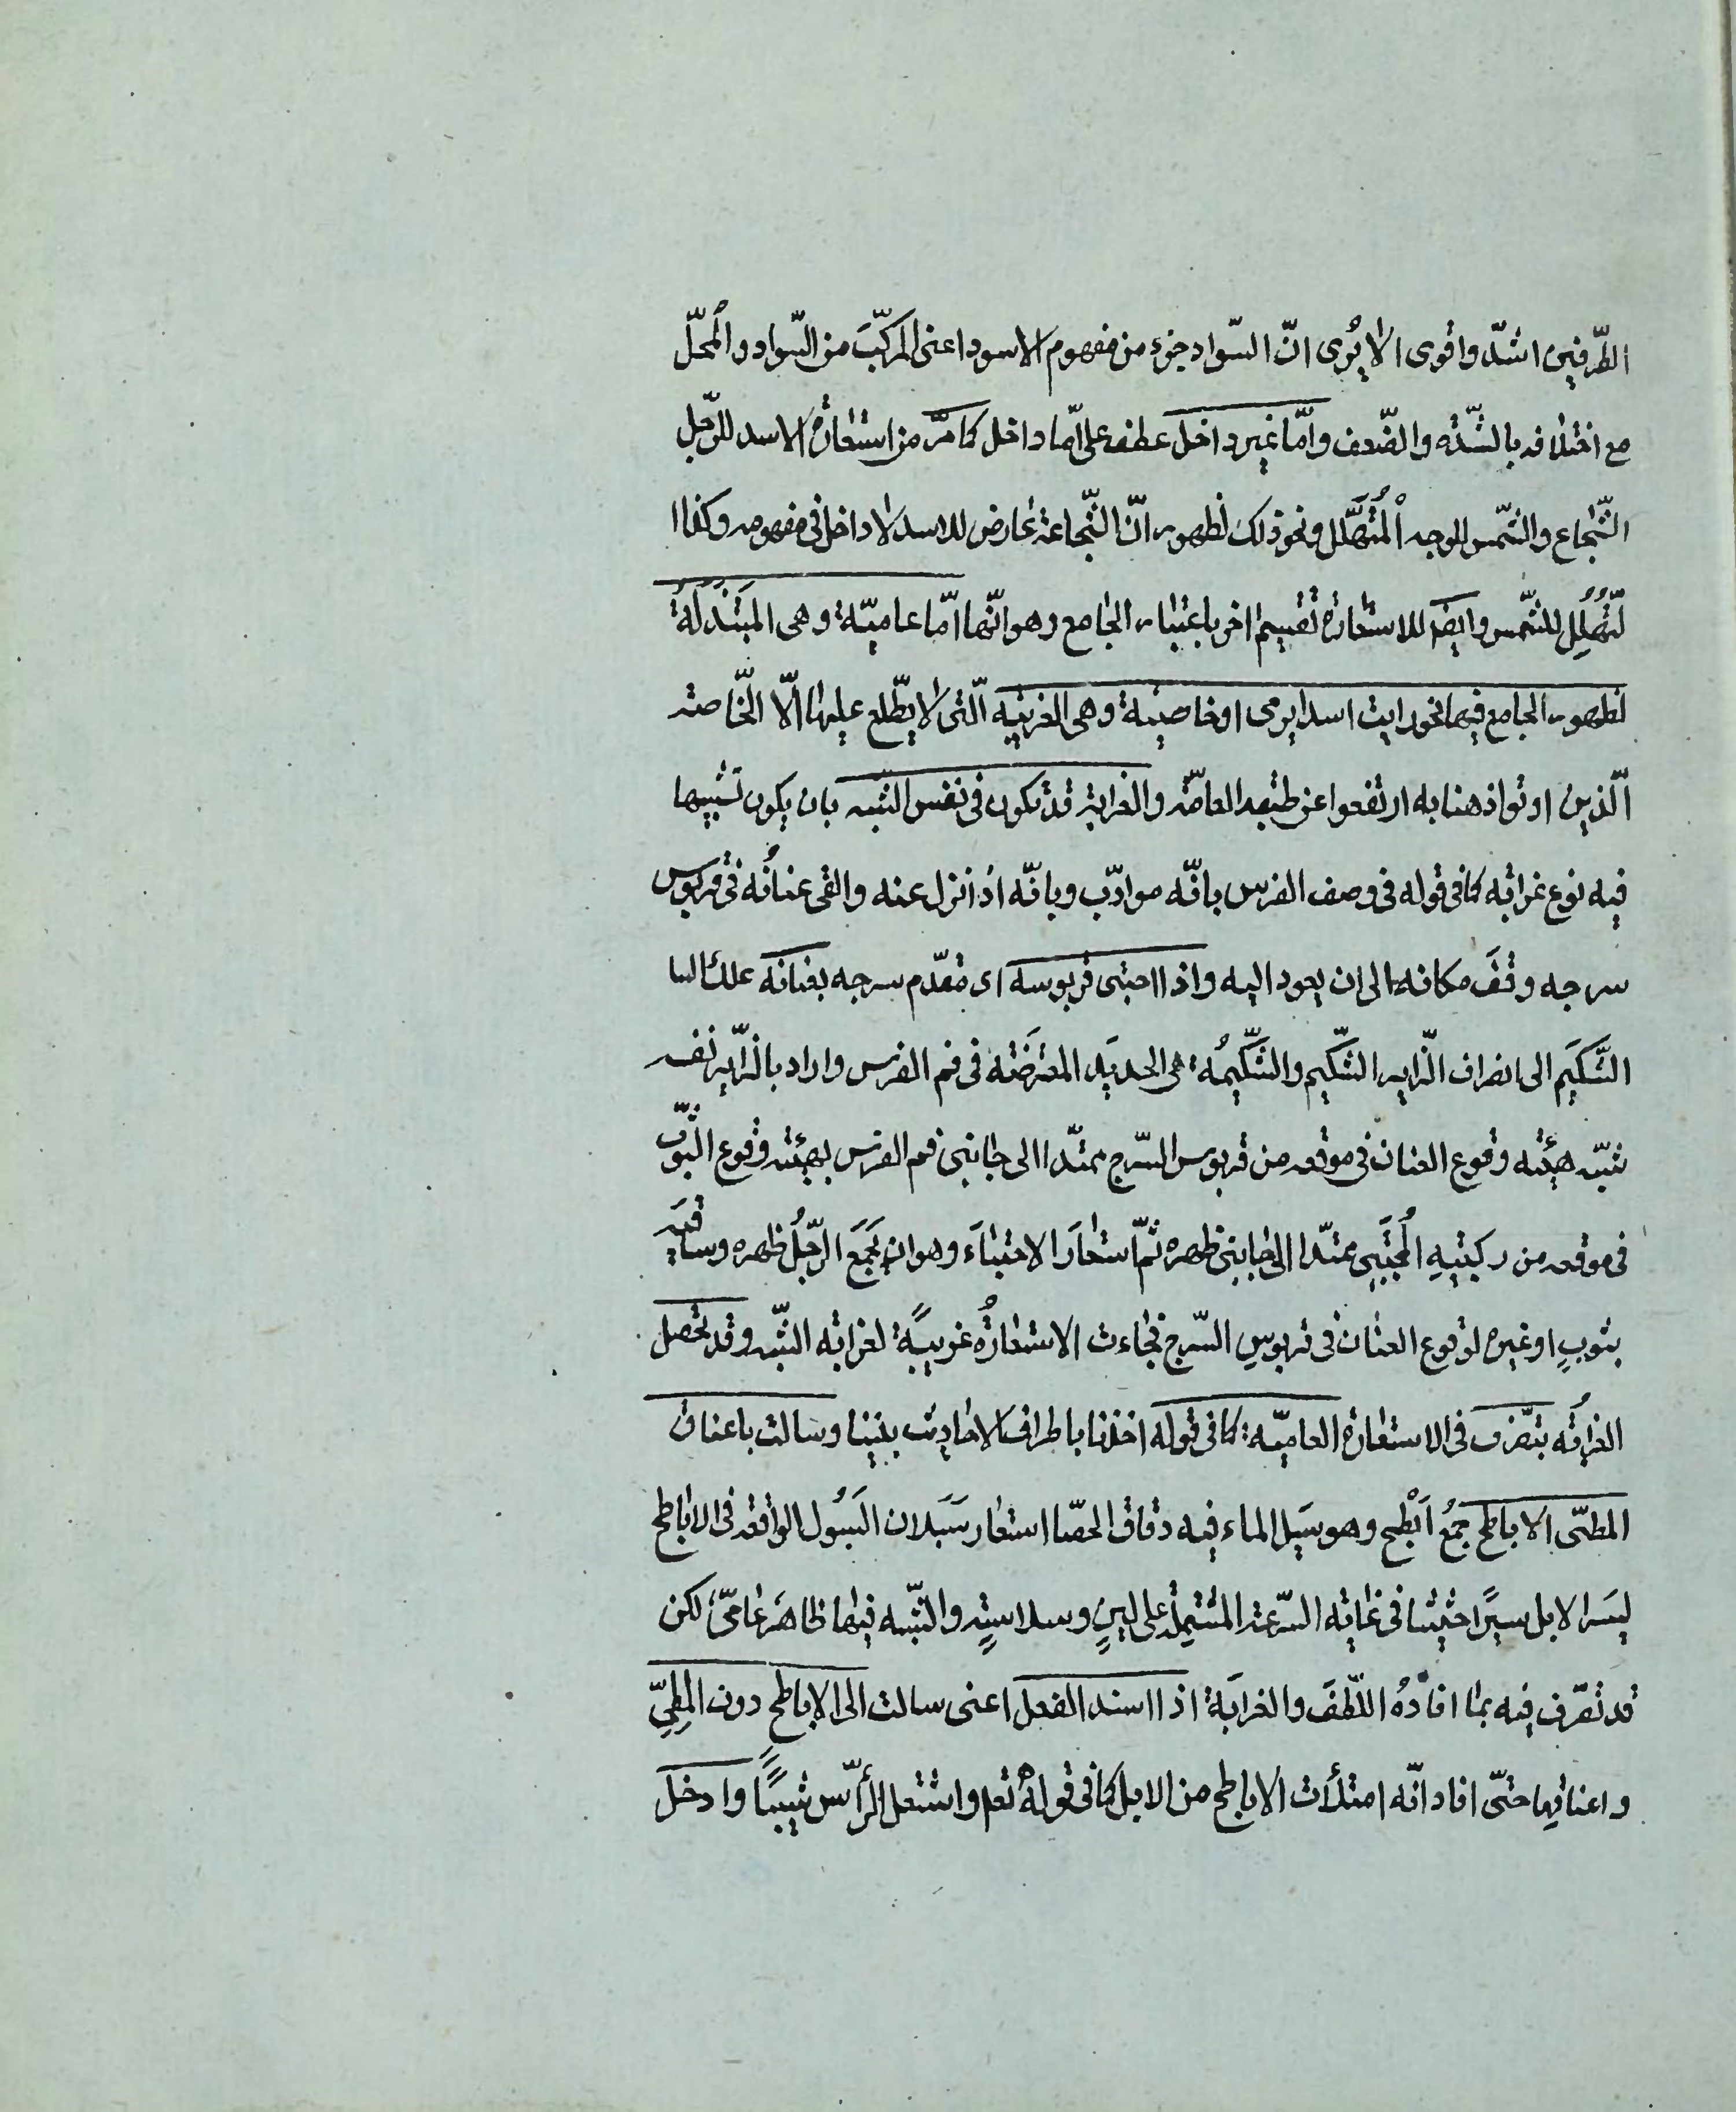 الطّرفين اشدّ واقوى الا يُرى انّ السّواد جزء من مفهوم الاسود اعنى المركّبَ من السّواد والمحلّ
مع اختلافه بالشّدّة والضّعف وامّا غير داخل عطف على امّا داخل كما مرّ من استعارة الاسد للرّجل
الشّجاع والشّمس للوجه المُتَهَلّل ونحو ذلك لظهور انّ الشّجاعة عارض للاسد لا داخل فى مفهومه وكذا ا
لتّهلّل للشّمس وايضا للاستعارة تقسيم اخر باعتبار الجامع وهو انّها امّا عاميّة وهى المبتذلة
لظهور الجامع فيها نحو رايت اسدا يرمى او خاصيّة وهى الغريبة الّتى لا يطّلع عليها الّا الخّاصة
الّذين اوتوا ذهنا به ارتفعوا عن طبقة العامّة والغرابة قد تكون فى نفس الشّبه بان يكون تشبيها
فيه نوع غرابة كما فى قوله فى وصف الفرس بانّه موادّب وبانّه اذا نزل عنه والقى عنانُه فى قربوس
سرجه وقفَ مكانه الى ان يعود اليه واذا احتبى قربوسه اى مقدّم سرجه بعنانه علك السا
الشَّكيَم الى انصراف الزّاير الشّكيم والشّكيمُة هى الحديدة المعترَضة فى فم الفرس واراد بالزّاير نفسه
شبّه هيئة وقوع العنان فى موقعه من قربوس السّرج ممتدّا الى جانبى فم الفرس بهيئة وقوع الثّوب
فى موقعه من ركبتيهِ المُحتَبِى ممتدّا الى جانبى ظهره ثمّ استعارَ الاحتباءَ وهو ان يَجمَعَ الرّجُلُ ظهره وساقيه
بثوبٍ او غيره لوقوع العنان فى قربوسِ السّرج فجاءت الاستعارةُ غريبةً لغرابة الشّبه وقد تحصل
الغرابُة بتصّرف فى الاستعارة العاميّة كما فى قوله اخذنا باطراف الاحاديث بيننا وسالت باعناق
المطىّ الاباطح جمعُ اَبْطح وهو سَيل الماء فيه دقاق الحصا استعار سَيَلان السُيول الواقعة فى الاباطح
ليسَر الابل سيرًا حثيثا فى غاية السّرعة المشتملة على لينٍ وسلاسةٍ والشّبه فيها ظاهَر عامّى لكن
قد تصّرف فيه بما افادهُ اللّطفَ والغرابَة اذا اسند الفعل اعنى سالت الى الاباطح دون المطِىّ
واعناقِها حتّى افاد انّه امتلأت الاباطح من الابل كما فى قولهُ تعلى واشتعل الرّأس شيبًا وادخل